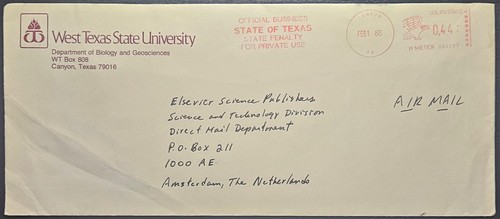 West Texas State University
Department of Biology and Geosciences
WT Box 808
Canyon, Texas 79016
OFFICIAL BUSINESS
STATE OF TEXAS
STATE PENALTY
FOR PRIVATE USE
U.S. POSTAGE
0.44
Elsevier Science Publishers
Science and Technology Division
Direct Mail Department
P.O. Box 211
1000 AE
Amsterdam, The Netherlands
AIR MAIL